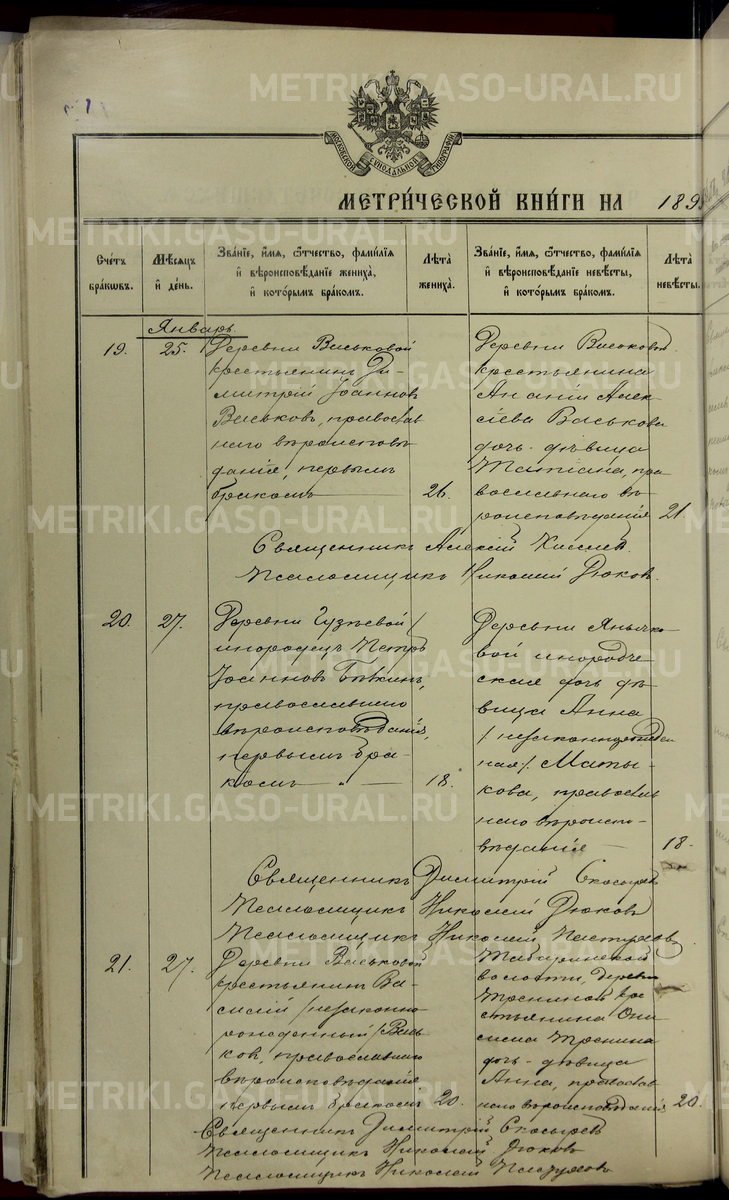 МОСКОВСКОЙ СѴНОДАЛЬНОЙ ТИПОГРАФІИ
МЕТРИ́ЧЕСКОЙ КНИ́ГИ НА 189
Сче́тъ бра́кѡвъ.
Мѣ́сѧцъ и҆ де́нь.
Зва́нїе, и҆́мѧ, ѻ҆́тчество, фами́лїѧ и҆ вѣроисповѣ́данїе жениха̀, и҆ кото́рымъ бра́комъ.
Лѣ́та жениха̀.
Зва́нїе, и҆́мѧ, ѻ҆́тчество, фами́лїѧ и҆ вѣроисповѣ́данїе невѣ́сты, и҆ кото́рымъ бра́комъ.
Лѣ́та невѣ́сты.
Январь.
19. 25.
Деревни Васьковой
крестьянинъ Ди-
митрій Іоанновъ
Васьковъ, православ
наго вѣроисповѣ
данія, первымъ
бракомъ 26.
Деревни Васьковой
крестьянина
Ананіи Алек
сѣева Васькова
дочь - дѣвица
Татіана, пра
вославнаго вѣ
роисповѣданія 21
Священникъ Алексій Киселев
Псаломщикъ Николай Дюковъ.
20. 27.
Деревни
инородецъ Петръ
Іоанновъ
православнаго
вѣроисповѣданія,
первымъ бра-
комъ „ 18.
Деревни Янычко-
вой инородче-
ская дочь дѣ-
вица Анна
/незаконнорожден
ная/. Маты-
кова, православ
наго вѣроиспо-
вѣданія 18.
Священникъ Димитрій Скосыревъ
Псаломщикъ Николай Дюковъ
Псаломщикъ Николай Пастуховъ
21. 27.
Деревни Васьковой
крестьянинъ Ва-
силій /незаконно
рожденный/ Вась
ковъ, православнаго
вѣроисповѣданія
первымъ бракомъ 20.
Табаринской
волости, деревни
крес
тьянина Они
сима
дочь - дѣвица
Анна, православ
наго вѣроисповѣданія 20.
Священникъ Димитрій Скосыревъ
Псаломщикъ Николай Дюковъ
Псаломщикъ Николай Пастуховъ
METRIKI.GASO-URAL.RU